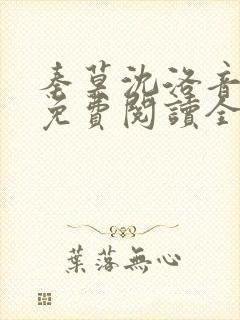 秦墓沈洛音
免費閱讀全
葉落無心